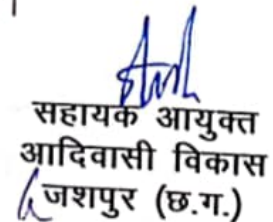 सहायक आयुक्त
आदिवासी विकास
जशपुर (छ.ग.)